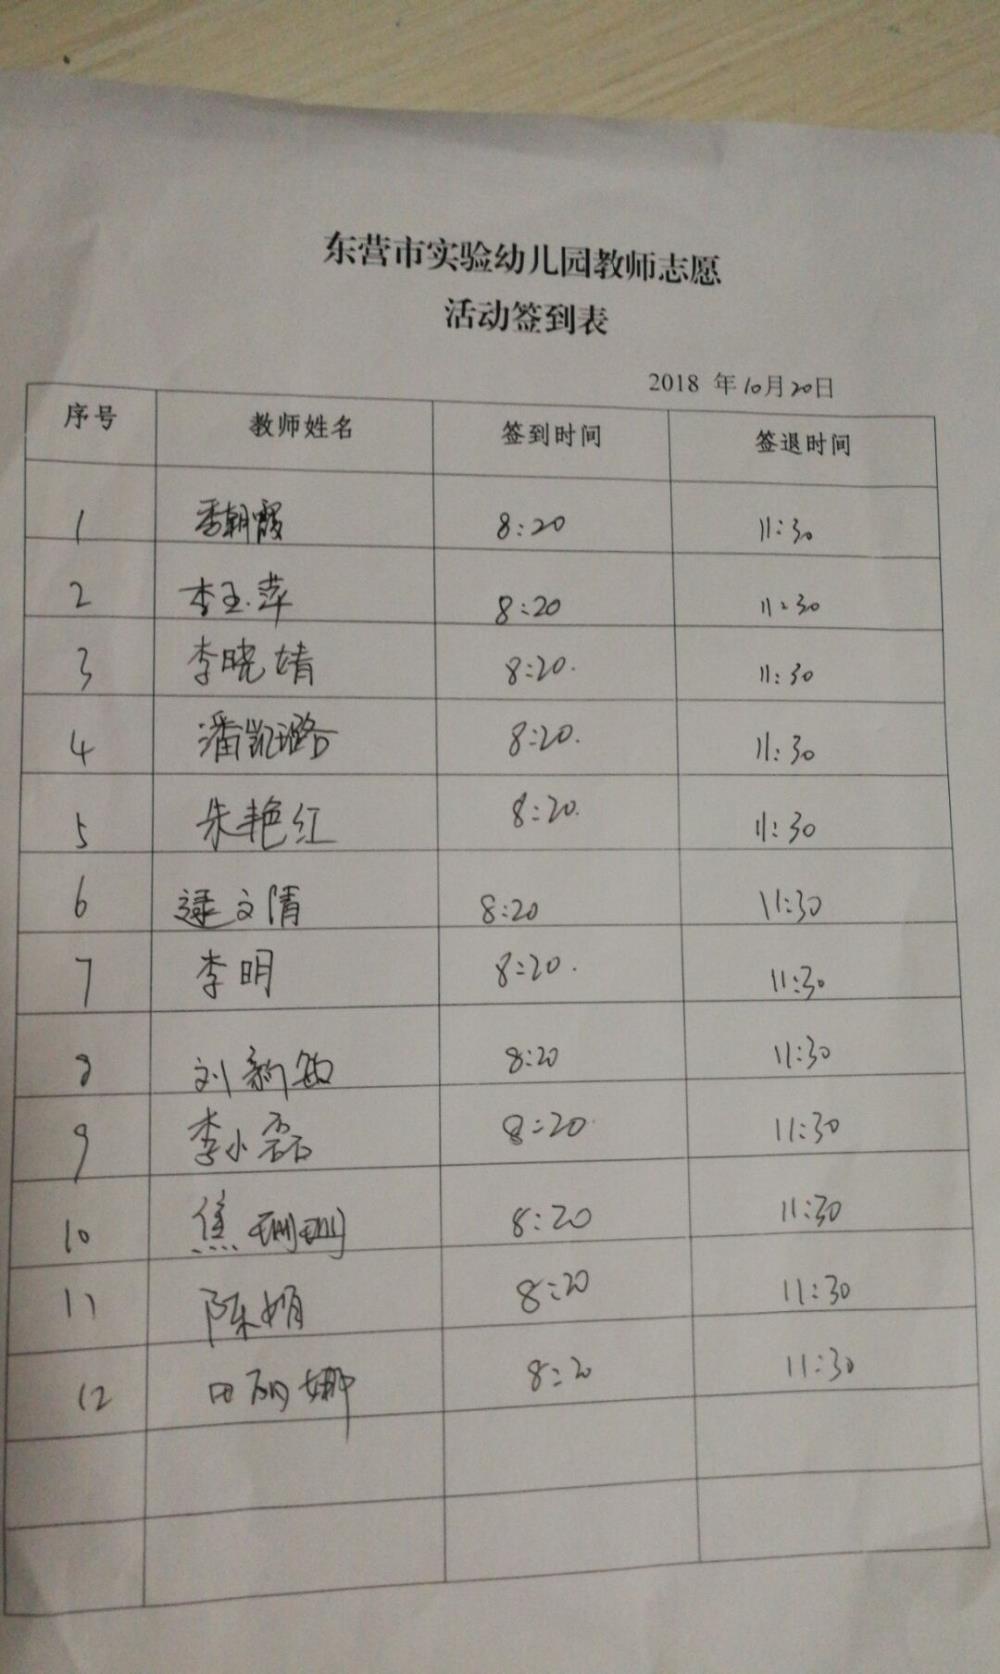 东营市实验幼儿园教师志愿
活动签到表
2018 年10月20日
序号 教师姓名 签到时间 签退时间
1 季朝霞 8:20 11:30
2 李玉萍 8:20 11:30
3 李晓婧 8:20. 11:30
4 潘凯璐 8:20. 11:30
5 朱艳红 8:20. 11:30
6 逯文清 8:20 11:30
7 李明 8:20. 11:30
8 刘新敏 8:20 11:30
9 李小磊 8:20 11:30
10 焦珊珊 8:20 11:30
11 陈娟 8:20 11:30
12 田丽娜 8:20 11:30